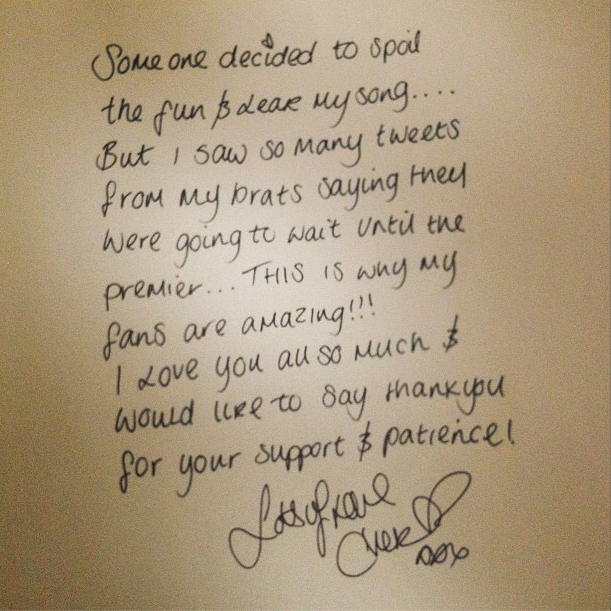 Someone decided to spoil
the fun & leak my song....
But I saw so many tweets
from my brats saying they
were going to wait until the
premier... THIS is why my
fans are amazing!!!
I love you all so much &
would like to say thankyou
for your support & patience!
Lots of love
Cher xxx